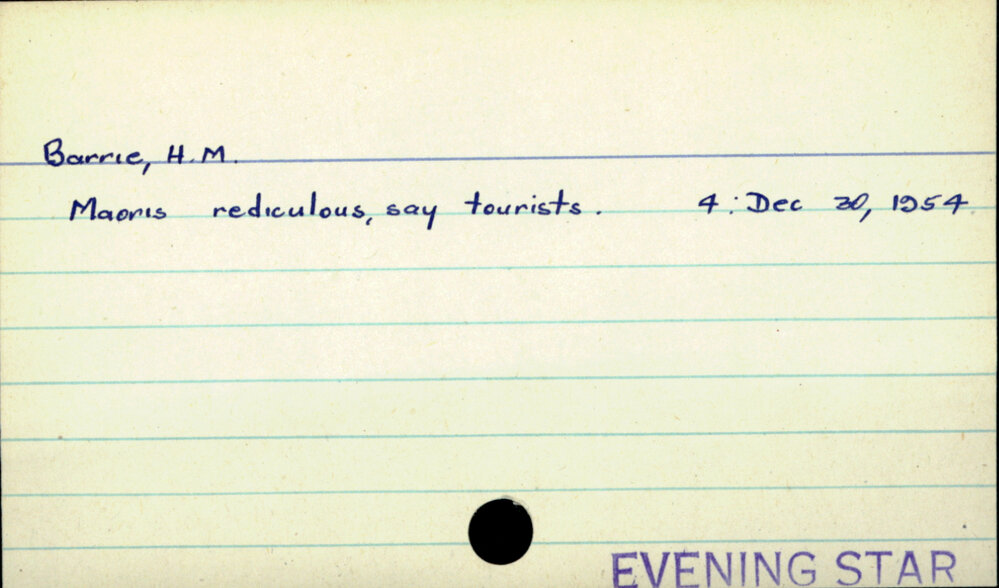 Barrie, H.M.
Maoris rediculous, say tourists. 4: Dec 30, 1954
EVENING STAR